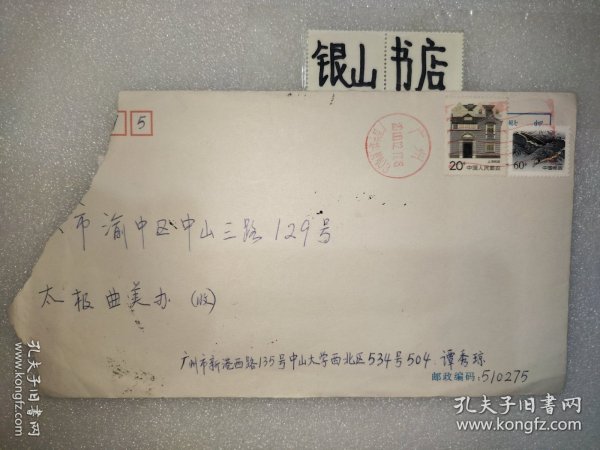 银山书店
1 5
广州
20分
中国人民邮政
60分
中国邮政
市渝中区中山三路129号
太极曲美办 (收)
广州市新港西路135号中山大学西北区534号504 谭秀琼
邮政编码:510275
孔夫子旧书网
www.kongfz.com
孔夫子旧书网
www.kongfz.com